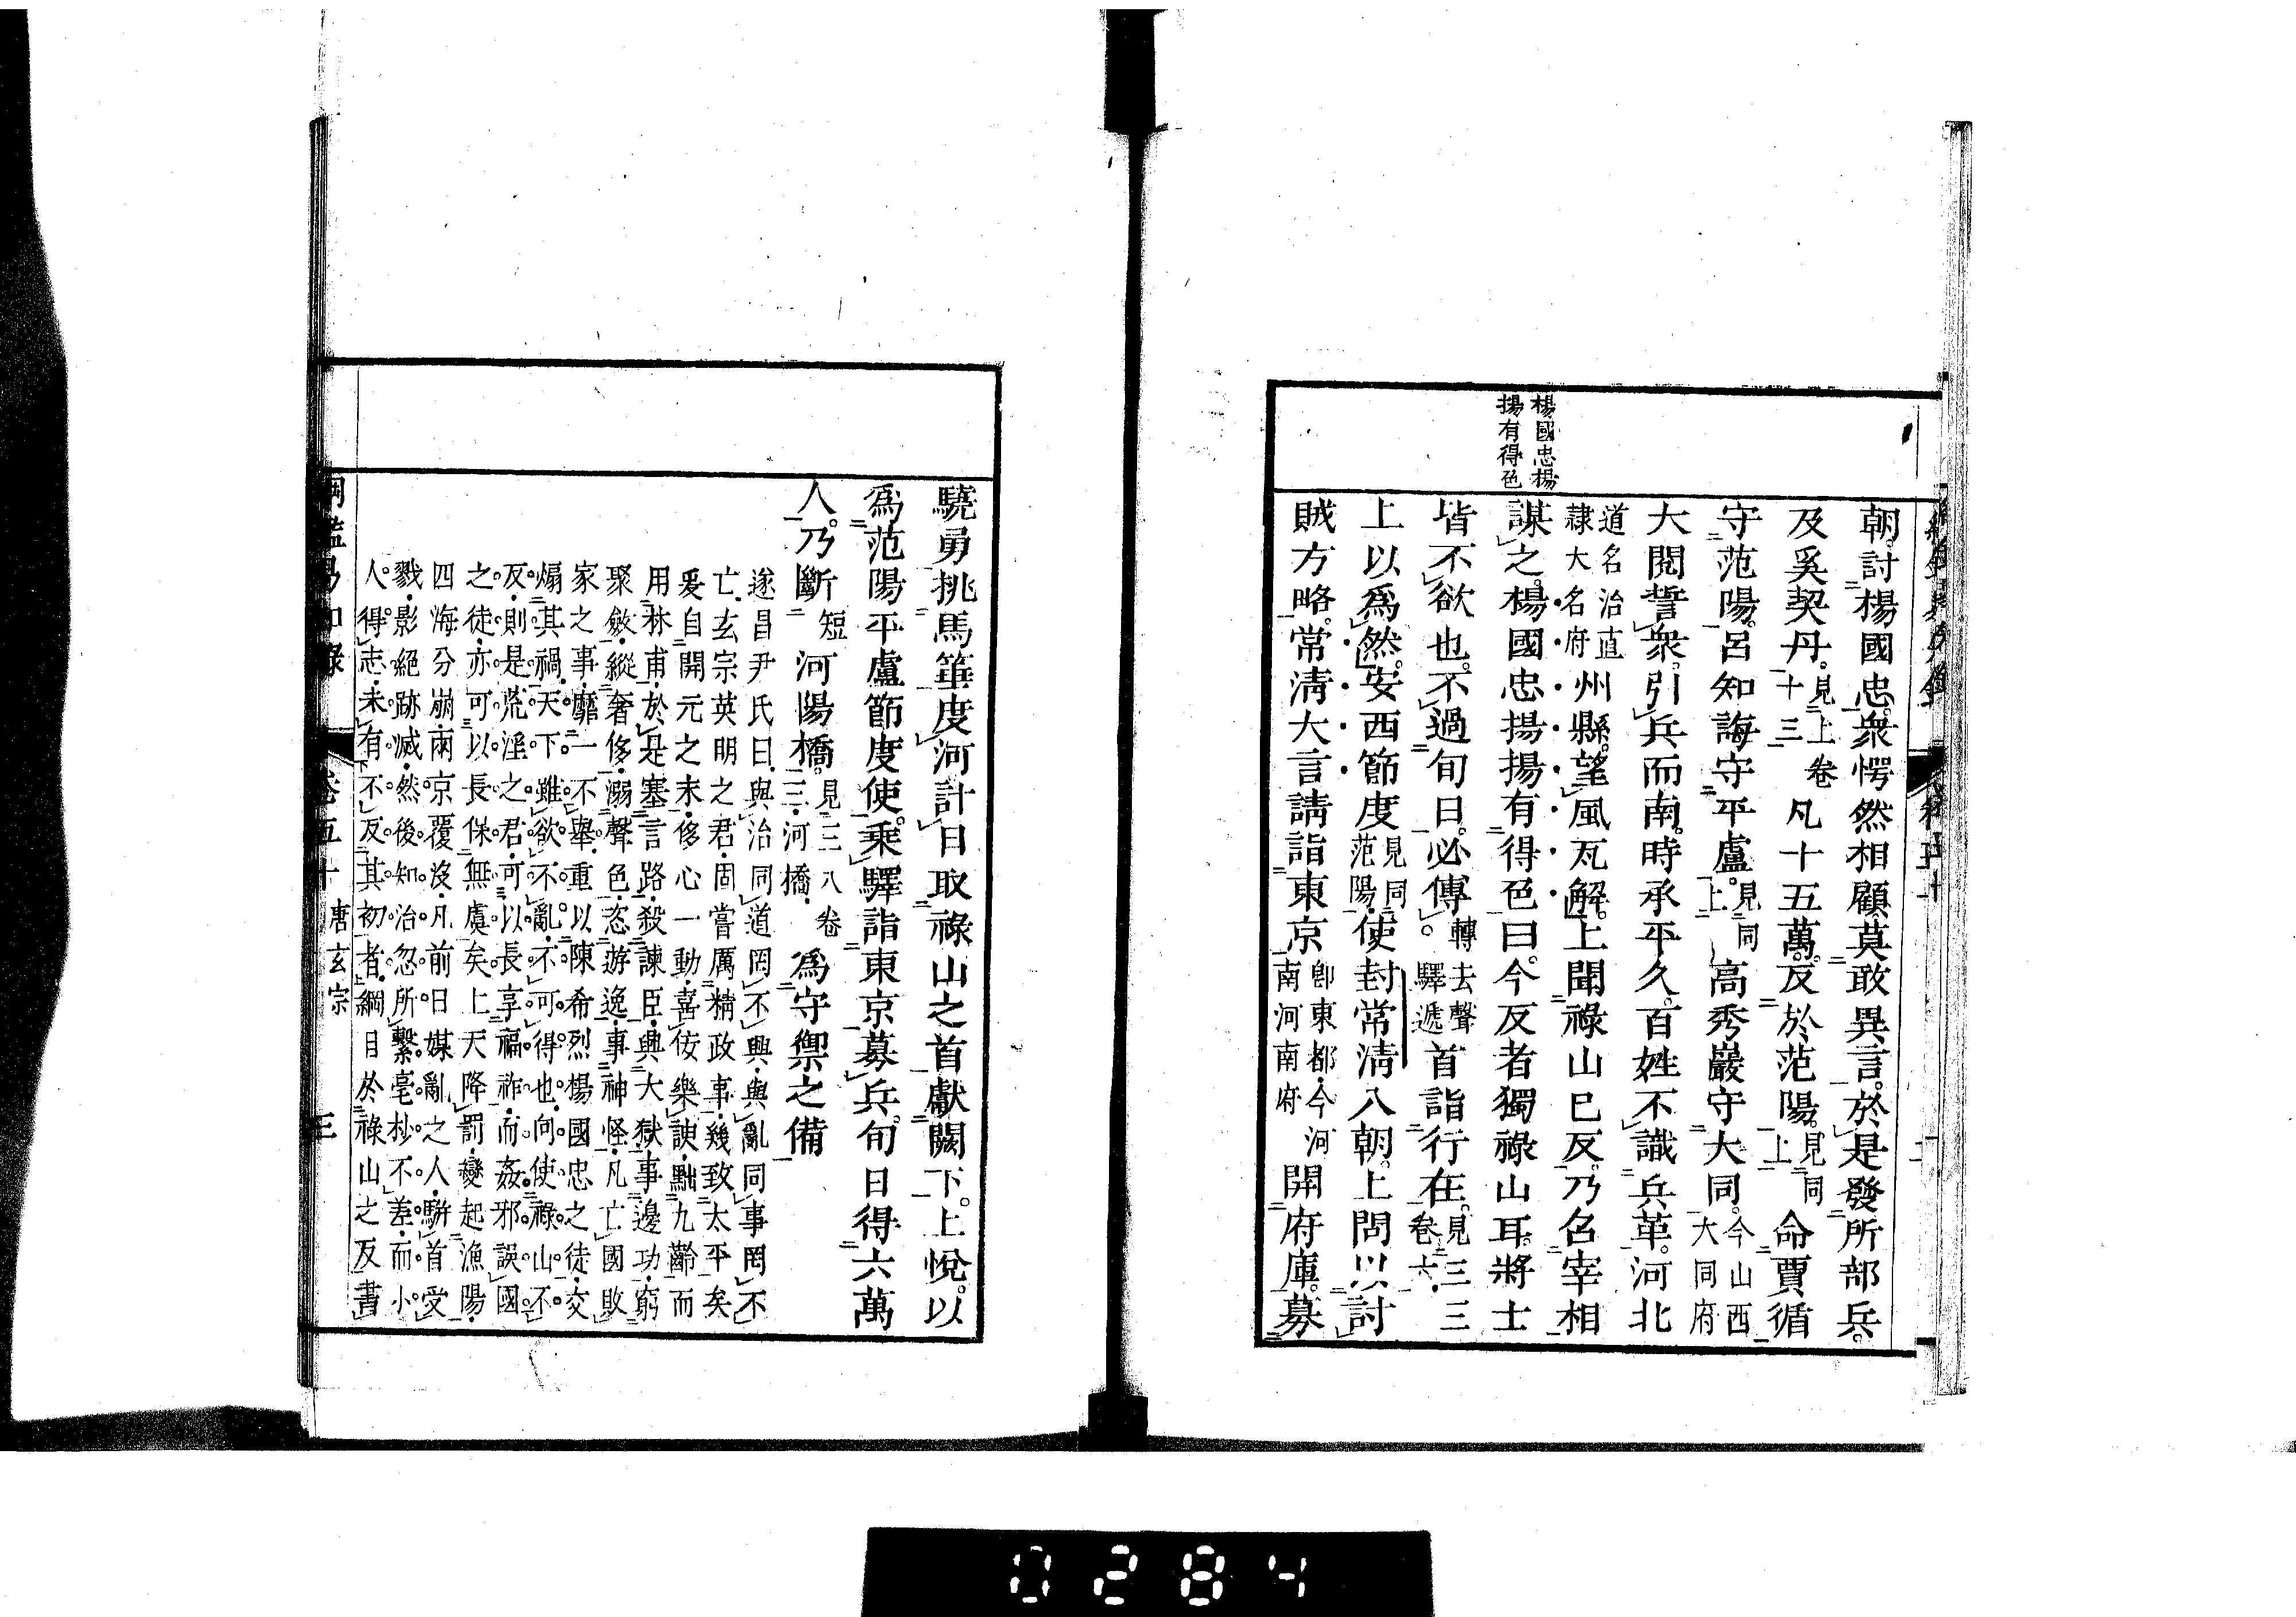 楊國忠揚
揚有得色
朝。討楊國忠。衆愕然相顧莫敢異言。於是發所部兵。
及奚契丹。見上卷十三凡十五萬。反於范陽。見同上命賈循
守范陽。呂知誨守平盧。見同上高秀巖守大同。今山西大同府
大閱誓衆。引兵而南。時承平久。百姓不識兵革。河北
道名治直隸大名府州縣。望風瓦解。上聞祿山已反。乃召宰相
謀之。楊國忠揚揚有得色曰。今反者獨祿山耳。將士
皆不欲也。不過旬日。必傳。轉去聲驛遞首詣行在。見三三卷六
上以爲然。安西節度見同范陽使封常淸入朝。上問以討
賊方略。常淸大言請詣東京卽東都今河南河南府開府庫。募
驍勇挑馬箠度河計日取祿山之首獻闕下。上悅。以
爲范陽平盧節度使。乘驛詣東京募兵。旬日得六萬
人。乃斷短河陽橋。見三八卷三三河橋爲守禦之備
遂昌尹氏曰與治同道罔不興與亂同事罔不
亡玄宗英明之君固嘗厲精政事幾致太平矣
爰自開元之末侈心一動喜佞樂諛黜九齡而
用林甫於是塞言路殺諫臣興大獄事邊功窮
聚斂縱奢侈溺聲色恣遊逸事神怪凡亡國敗
家之事靡一不舉重以陳希烈楊國忠之徒交
煽其禍天下雖欲不亂不可得也向使祿山不
反則是荒淫之君可以長享福祚而姦邪誤國
之徒亦可以長保無虞矣上天降罰變起漁陽
四海分崩兩京覆沒凡前日媒亂之人騈首受
戮影絕跡滅然後知治忽所繫毫杪不差而小
人得志未有不反其初者綱目於祿山之反書
綱鑑易知錄 卷五十 唐玄宗 三